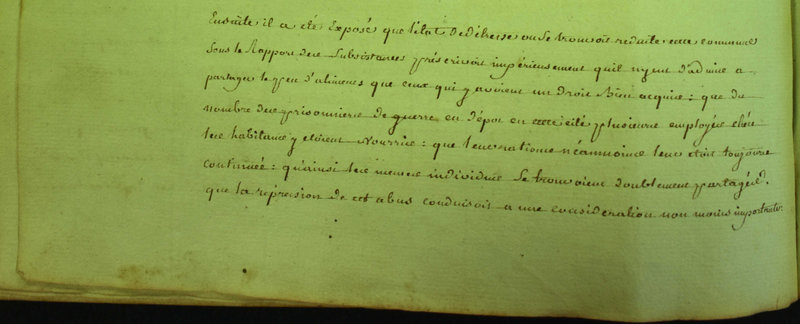 Ensuite il a été Exposé que l'état de détresse ou se trouvoit reduite cette commune
sous le Rapport des Subsistances préscrivoit impérieusement qu'il n'y eut d'admis a
partager le peu d'alimens que ceux qui y avoient un droit Bien acquis : que du
nombre des prisonniers de guerre en dépot en cette cité plusieurs employés chés
les habitans y etoient Nourris : que leurs rations néanmoins leur etoit toujours
continuée : qu'ainsi les memes individus Se trouvoient doublement partagés.
que la répression de cet abus conduisoit a une consideration non moins importante.